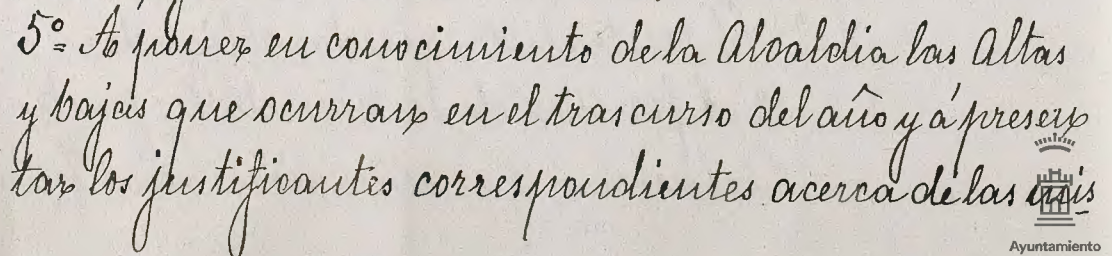 5º= A poner en conocimiento de la Alcaldia las Altas
y bajas que ocurran en el trascurso del año y á presen
tar los justificantes correspondientes acerca de las mis
Ayuntamiento